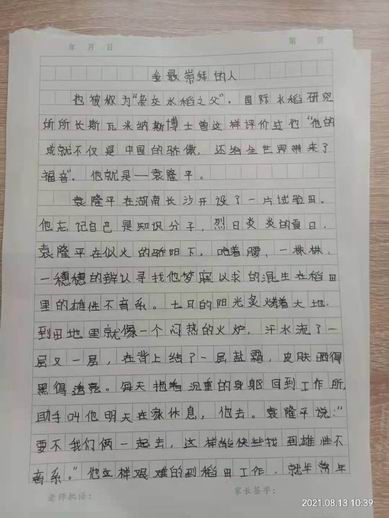 年 月 日 第 页
我最崇拜的人
他被称为“杂交水稻之父”。国际水稻研究
所所长斯瓦米纳斯博士曾这样评价过他“他的
成就不仅是中国的骄傲，还给全世界带来了
福音”。他就是——袁隆平。
袁隆平在湖南长沙开设了一片试验田。
他忘记自己是知识分子，烈日炎炎的夏日，
袁隆平在似火的骄阳下，腰，一株株，
一穗穗的辨认寻找他梦寐以求的混生在稻田
里的雄性不育系。七月的阳光炙烤着大地，
到田地里就像一个闷热的火炉，汗水流了一
层又一层，在背上结了一层盐霜，皮肤晒得
黑得透亮。每天拖着沉重的身躯回到工作所，
助手叫他明天在家休息，他去。袁隆平说：“
要不我们俩一起去，这样能快些找到雄性不
育系。”他这样艰难的到稻田工作，就年年
老师批语： 家长签字：
2021.08.13 10:39